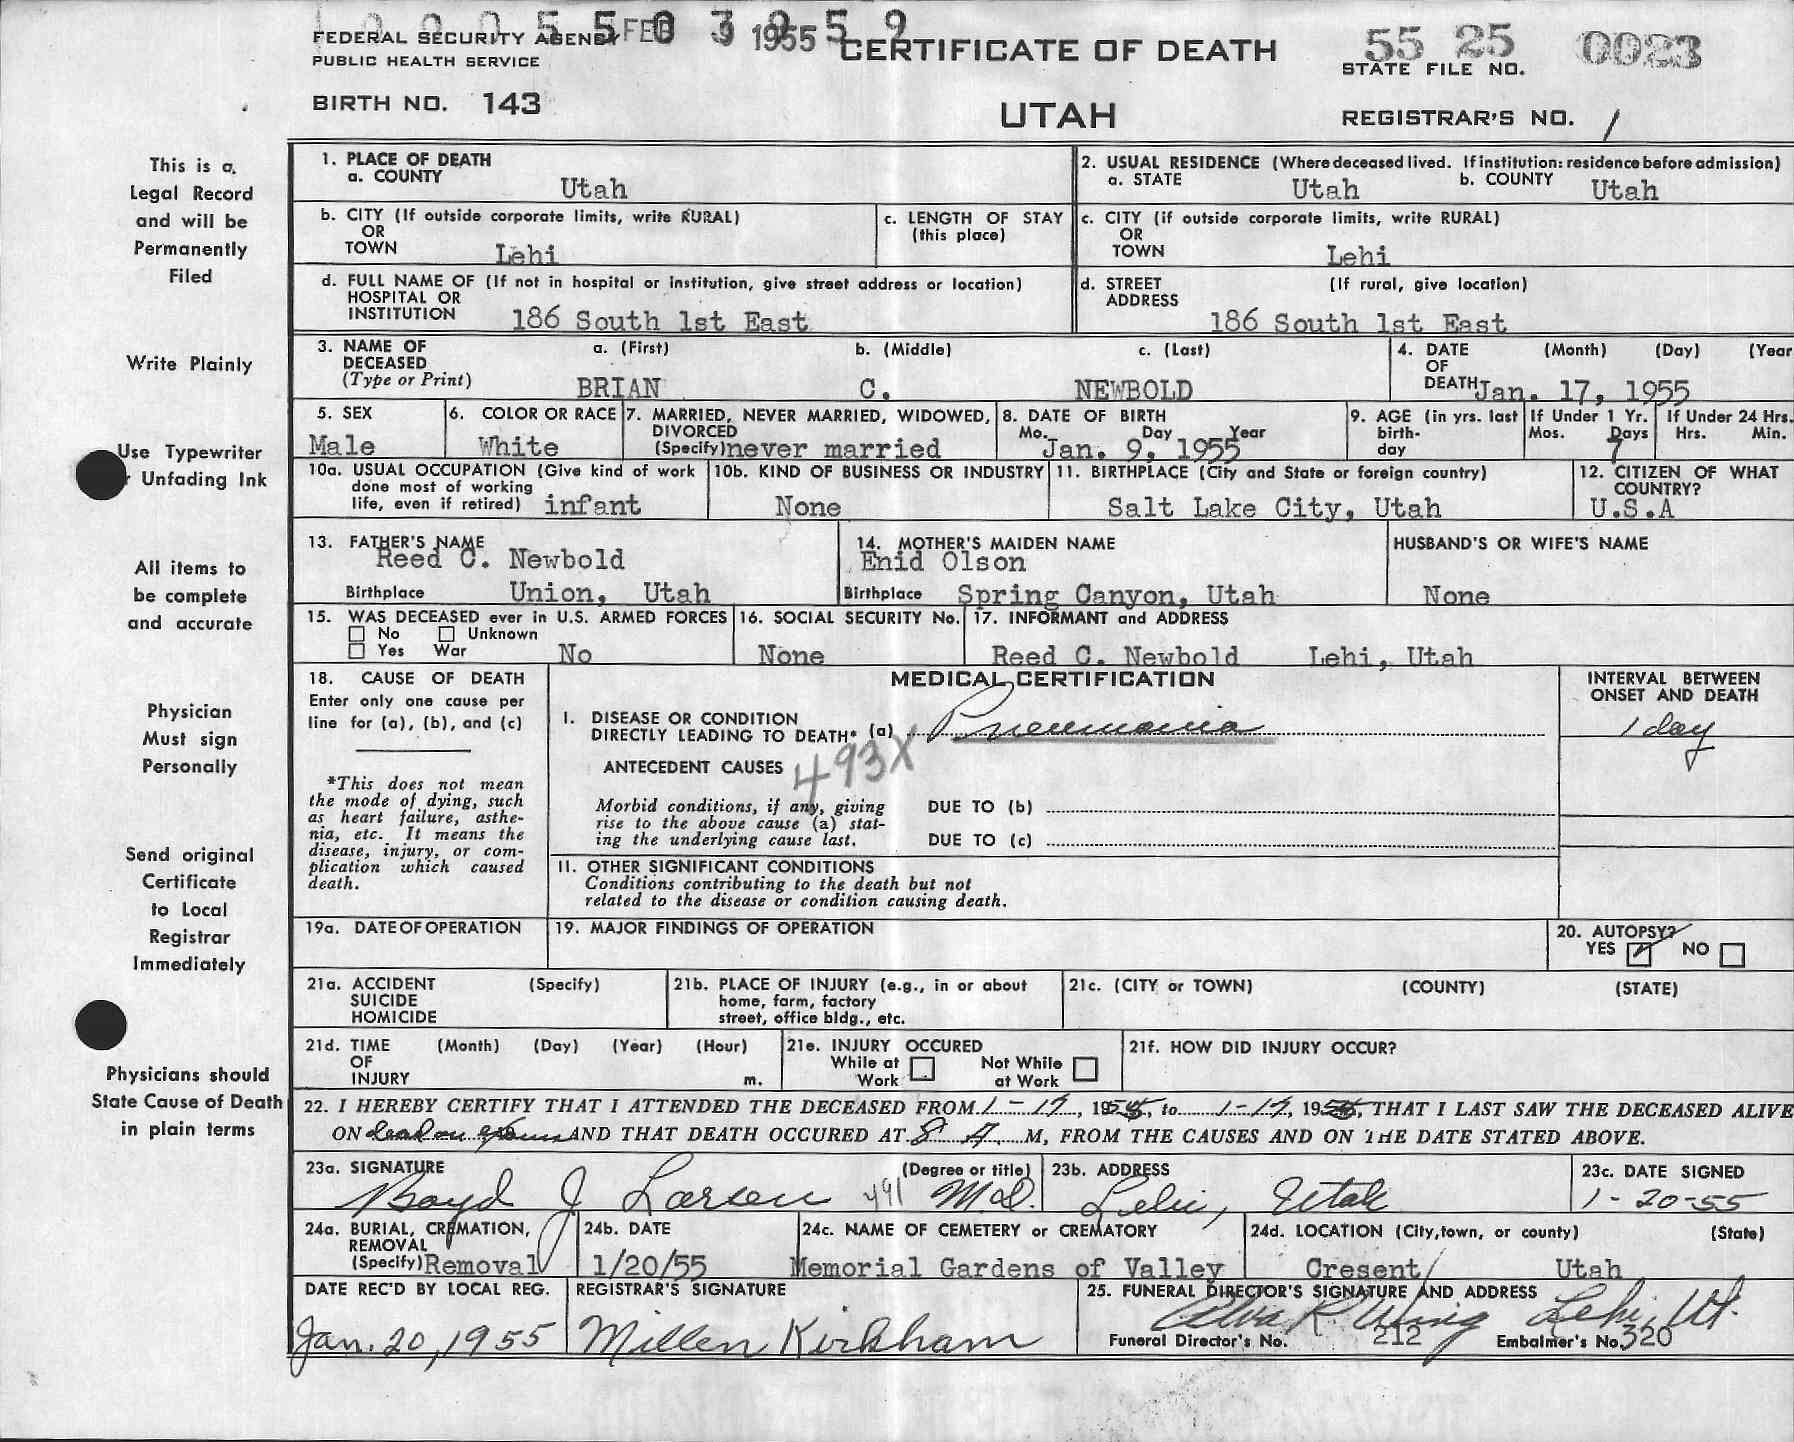 FEDERAL SECURITY AGENCY FEB 1955 CERTIFICATE OF DEATH 55 25 0023
PUBLIC HEALTH SERVICE STATE FILE NO.
BIRTH NO. 143 UTAH REGISTRAR'S NO. 1
This is a
Legal Record
and will be
Permanently
Filed
Write Plainly
Use Typewriter
Unfading Ink
All items to
be complete
and accurate
Physician
Must sign
Personally
Send original
Certificate
to Local
Registrar
Immediately
Physicians should
State Cause of Death
in plain terms
1. PLACE OF DEATH
a. COUNTY Utah
2. USUAL RESIDENCE (Where deceased lived. If institution: residence before admission)
a. STATE Utah b. COUNTY Utah
b. CITY (If outside corporate limits, write RURAL)
OR
TOWN Lehi
c. LENGTH OF STAY
(this place)
c. CITY (if outside corporate limits, write RURAL)
OR
TOWN Lehi
d. FULL NAME OF (If not in hospital or institution, give street address or location)
HOSPITAL OR
INSTITUTION 186 South 1st East
d. STREET (If rural, give location)
ADDRESS
186 South 1st East
3. NAME OF a. (First) b. (Middle) c. (Last)
DECEASED
(Type or Print) BRIAN C. NEWBOLD
4. DATE (Month) (Day) (Year
OF
DEATH Jan. 17, 1955
5. SEX
Male
6. COLOR OR RACE
White
7. MARRIED, NEVER MARRIED, WIDOWED,
DIVORCED
(Specify) never married
8. DATE OF BIRTH
Mo. Day Year
Jan. 9, 1955
9. AGE (in yrs. last
birth-
day
If Under 1 Yr.
Mos. Days
7
If Under 24 Hrs.
Hrs. Min.
10a. USUAL OCCUPATION (Give kind of work
done most of working
life, even if retired) infant
10b. KIND OF BUSINESS OR INDUSTRY
None
11. BIRTHPLACE (City and State or foreign country)
Salt Lake City, Utah
12. CITIZEN OF WHAT
COUNTRY?
U.S.A
13. FATHER'S NAME
Reed C. Newbold
Birthplace Union, Utah
14. MOTHER'S MAIDEN NAME
Enid Olson
Birthplace Spring Canyon, Utah
HUSBAND'S OR WIFE'S NAME
None
15. WAS DECEASED ever in U.S. ARMED FORCES
No Unknown
Yes War No
16. SOCIAL SECURITY No.
None
17. INFORMANT and ADDRESS
Reed C. Newbold Lehi, Utah
18. CAUSE OF DEATH
Enter only one cause per
line for (a), (b), and (c)
*This does not mean
the mode of dying, such
as heart failure, asthe-
nia, etc. It means the
disease, injury, or com-
plication which caused
death.
MEDICAL CERTIFICATION
I. DISEASE OR CONDITION
DIRECTLY LEADING TO DEATH* (a) Pneumonia
ANTECEDENT CAUSES 493X
Morbid conditions, if any, giving
rise to the above cause (a) stat-
ing the underlying cause last.
DUE TO (b)
DUE TO (c)
INTERVAL BETWEEN
ONSET AND DEATH
1 day
II. OTHER SIGNIFICANT CONDITIONS
Conditions contributing to the death but not
related to the disease or condition causing death.
19a. DATE OF OPERATION
19. MAJOR FINDINGS OF OPERATION
20. AUTOPSY?
YES NO
21a. ACCIDENT (Specify)
SUICIDE
HOMICIDE
21b. PLACE OF INJURY (e.g., in or about
home, farm, factory
street, office bldg., etc.
21c. (CITY or TOWN) (COUNTY) (STATE)
21d. TIME (Month) (Day) (Year) (Hour)
OF
INJURY m.
21e. INJURY OCCURED
While at Not While
Work at Work
21f. HOW DID INJURY OCCUR?
22. I HEREBY CERTIFY THAT I ATTENDED THE DECEASED FROM 1-17, 1955, to 1-17, 1955, THAT I LAST SAW THE DECEASED ALIVE
ON dead on AND THAT DEATH OCCURED AT 8 A. M, FROM THE CAUSES AND ON THE DATE STATED ABOVE.
23a. SIGNATURE (Degree or title)
Boyd J Larsen 491 M.D.
23b. ADDRESS
Lehi, Utah
23c. DATE SIGNED
1-20-55
24a. BURIAL, CREMATION,
REMOVAL
(Specify) Removal
24b. DATE
1/20/55
24c. NAME OF CEMETERY or CREMATORY
Memorial Gardens of Valley
24d. LOCATION (City, town, or county) (State)
Cresent Utah
DATE REC'D BY LOCAL REG.
Jan. 20, 1955
REGISTRAR'S SIGNATURE
Millen Kirkham
25. FUNERAL DIRECTOR'S SIGNATURE AND ADDRESS
Alva R. Wing Lehi, Ut.
Funeral Director's No. 212 Embalmer's No. 320